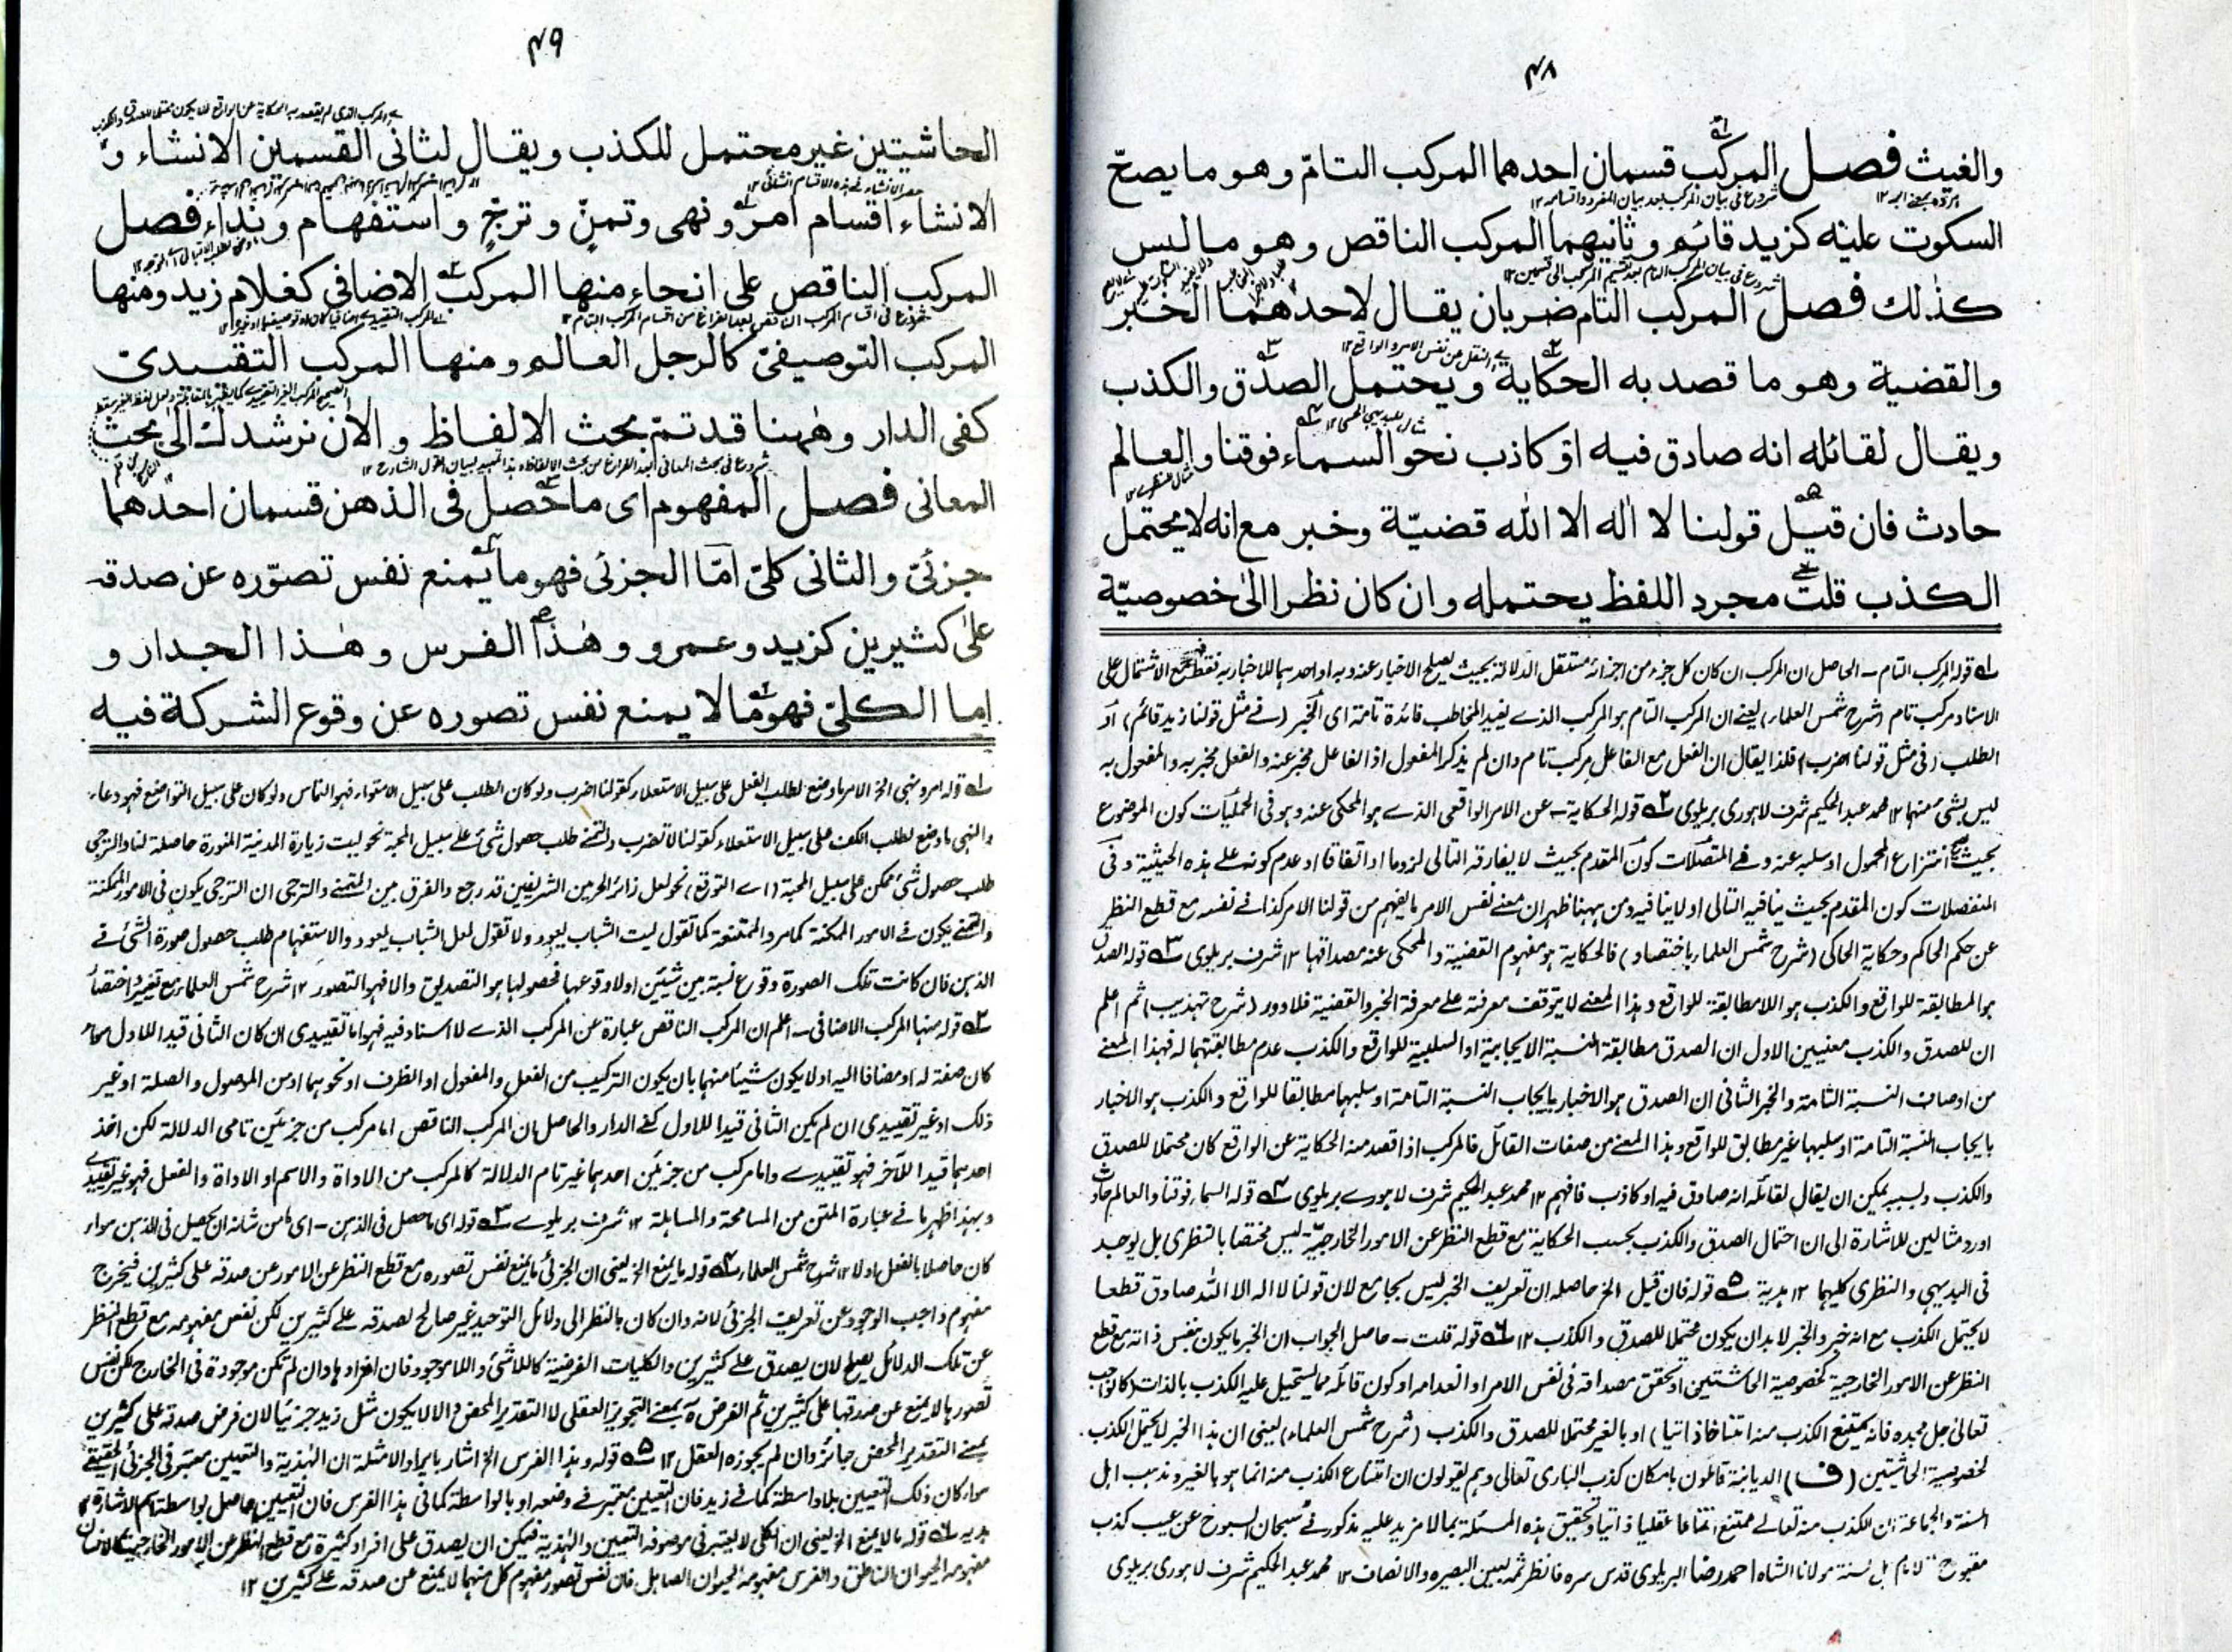 ۴۸
والغيث فصل المركب قسمان احدهما المركب التامّ وهو ما يصحّ
السكوت عليه كزيد قائم وثانيهما المركب الناقص وهو ما ليس
كذٰلك فصل المركب التام ضربان يقال لاحدهما الخبر
والقضية وهو ما قصد به الحكاية ويحتمل الصدق والكذب
ويقال لقائله انه صادق فيه او كاذب نحو السماء فوقنا والعالم
حادث فان قيل قولنا لا الٰه الا الله قضيّة وخبر مع انه لا يحتمل
الكذب قلت مجرد اللفظ يحتمله وان كان نظرا الىٰ خصوصيّة
۱ قوله المركب التام – الحاصل ان المركب ان كان كل جزء من اجزائه مستقل الدلالة بحيث يصلح الاخبار عنه وبه او احدهما للاخبار به فقط مع الاشتمال على
الاسناد مركب تام (شرح شمس العلماء) يعنے ان المركب التام هو المركب الذے يفيد المخاطب فائدة تامة اى الخبر (فے مثل قولنا زيد قائم) او
الطلب (فى مثل قولنا اضرب) فلذا يقال ان الفعل مع الفاعل مركب تام وان لم يذكر المفعول اذ الفاعل مخبر عنه والفعل مخبر به والمفعول به
ليس بشئ منهما ۱۲ محمد عبد الحكيم شرف لاهورى بريلوى ۲ قوله الحكاية – عن الامر الواقعى الذے هو المحكى عنه وهو فى الحمليات كون الموضوع
بحيث يصح انتزاع المحمول او سلبه عنه وفے المتصلات كون المقدم بحيث لا يفارقه التالى لزوما او اتفاقا او عدم كونه علے هذه الحيثية وفى
المنفصلات كون المقدم بحيث ينافيه التالى او لا ينافيه ومن ههنا ظهر ان معنے نفس الامر ما يفهم من قولنا الامر كذا فے نفسه مع قطع النظر
عن حكم الحاكم وحكاية الحاكى (شرح شمس العلماء باختصار) فالحكاية هو مفهوم القضية والمحكى عنه مصداقها ۱۲ شرف بريلوى ۳ قوله الصدق
هو المطابقة للواقع والكذب هو اللامطابقة للواقع وهذا المعنے لا يتوقف معرفته علے معرفة الخبر والقضية فلا دور (شرح تهذيب) ثم اعلم
ان للصدق والكذب معنيين الاول ان الصدق مطابقة النسبة الايجابية او السلبية للواقع والكذب عدم مطابقتهما له فهذا المعنے
من اوصاف النسبة التامة والخبر الثانى ان الصدق هو الاخبار بايجاب النسبة التامة او سلبها مطابقا للواقع والكذب هو الاخبار
بايجاب النسبة التامة او سلبها غير مطابق للواقع وهذا المعنے من صفات القائل فالمركب اذا قصد منه الحكاية عن الواقع كان محتملا للصدق
والكذب وبسببه يمكن ان يقال لقائله انه صادق فيه او كاذب فافهم ۱۲ محمد عبد الحكيم شرف لاهورے بريلوى ۴ قوله السماء فوقنا والعالم حادث
اورد مثالين للاشارة الى ان احتمال الصدق والكذب بحسب الحكاية مع قطع النظر عن الامور الخارجية ليس مختصا بالنظرى بل يوجد
فى البديهى والنظرى كليهما ۱۲ هدية ۵ قوله فان قيل الخ حاصله ان تعريف الخبر ليس بجامع لان قولنا لا اله الا الله صادق قطعا
لا يحتمل الكذب مع انه خبر والخبر لا بد ان يكون محتملا للصدق والكذب ۱۲ ۶ قوله قلت – حاصل الجواب ان الخبر ما يكون بنفس ذاته مع قطع
النظر عن الامور الخارجية كخصوصية الحاشيتين او تحقق مصداقه فى نفس الامر او انعدامه او كون قائله مما يستحيل عليه الكذب بالذات (كالواجب
تعالى جل مجده فانه يمتنع الكذب منه امتناعا ذاتيا) او بالغير محتملا للصدق والكذب (شرح شمس العلماء) يعنى ان هذا الخبر لا يحتمل الكذب
لخصوصية الحاشيتين (ف) الديابنة قائلون بامكان كذب البارى تعالى وهم يقولون ان امتناع الكذب منه انما هو بالغير ومذهب اهل
السنة والجماعة ان الكذب منه تعالے ممتنع امتناعا عقليا ذاتيا وتحقيق هذه المسئلة بما لا مزيد عليه مذكور فے سبحان السبوح عن عيب كذب
مقبوح" لامام اهل سنة مولانا الشاه احمد رضا البريلوى قدس سره فانظر ثمه بعين البصيرة والانصاف ۱۲ محمد عبد الحكيم شرف لاهورى بريلوى
۴۹
الحاشيتين غير محتمل للكذب ويقال لثانى القسمين الانشاء و
الانشاء اقسام امر ونهى وتمنّ وترجّ واستفهام ونداء فصل
المركب الناقص على انحاء منها المركب الاضافى كغلام زيد ومنها
المركب التوصيفىّ كالرجل العالم ومنها المركب التقييدىّ
كفى الدار وهٰهنا قد تمّ بحث الالفاظ والاٰن نرشدك الى بحث
المعانى فصل المفهوم اى ما حصل فى الذهن قسمان احدهما
جزئىّ والثانى كلىّ امّا الجزئى فهو ما يمنع نفس تصوّره عن صدقه
علىٰ كثيرين كزيد وعمرو وهٰذا الفرس وهٰذا الجدار و
اما الكلىّ فهو ما لا يمنع نفس تصوره عن وقوع الشركة فيه
۱ قوله امر ونهى الخ الامر ما وضع لطلب الفعل على سبيل الاستعلاء كقولنا اضرب ولو كان الطلب على سبيل الاستواء فهو التماس ولو كان على سبيل التواضع فهو دعاء
والنهى ما وضع لطلب الكف على سبيل الاستعلاء كقولنا لا تضرب والتمنے طلب حصول شئ علے سبيل المحبة نحو ليت زيارة المدينة المنورة حاصلة لنا والترجى
طلب حصول شئ ممكن على سبيل المحبة (اے التوقع) نحو لعل زائر الحرمين الشريفين قد رجع والفرق بين التمنے والترجى ان الترجى يكون فى الامور الممكنة
والتمنے يكون فے الامور الممكنة كما مر والممتنعة كما تقول ليت الشباب يعود ولا تقول لعل الشباب يعود والاستفهام طلب حصول صورة الشئ فے
الذهن فان كانت تلك الصورة وقوع نسبة بين شيئين اولا وقوعها فحصولها هو التصديق والا فهو التصور ۱۲ شرح شمس العلماء مع تغيير واختصار
۲ قوله منها المركب الاضافى – اعلم ان المركب الناقص عبارة عن المركب الذے لا اسناد فيه فهو اما تقييدى ان كان الثانى قيدا للاول سواء
كان صفة له او مضافا اليه او لا يكون شيئا منهما بان يكون التركيب من الفعل والمفعول او الظرف او نحوهما او من الموصول والصلة او غير
ذلك او غير تقييدى ان لم يكن الثانى قيدا للاول كفے الدار والحاصل ان المركب الناقص اما مركب من جزئين تامى الدلالة لكن اخذ
احدهما قيدا للآخر فهو تقييدے واما مركب من جزئين احدهما غير تام الدلالة كالمركب من الاداة والاسم او الاداة والفعل فهو غير تقييدے
وبهذا ظهر ما فے عبارة المتن من المسامحة والمساهلة ۱۲ شرف بريلوے ۳ قوله اى ما حصل فى الذهن – اى ما من شانه ان يحصل فى الذهن سواء
كان حاصلا بالفعل او لا ۱۲ شرح شمس العلماء ۴ قوله ما يمنع الخ يعنى ان الجزئى ما يمنع نفس تصوره مع قطع النظر عن الامور عن صدقه على كثيرين فيخرج
مفهوم واجب الوجود عن تعريف الجزئى لانه وان كان بالنظر الى دلائل التوحيد غير صالح لصدقه علے كثيرين لكن نفس مفهومه مع قطع النظر
عن تلك الدلائل يصلح لان يصدق علے كثيرين والكليات الفرضية كاللاشئ واللاموجود فان افرادها وان لم تكن موجودة فى الخارج لكن نفس
تصورها لا يمنع عن صدقها على كثيرين ثم الفرض ههنا بمعنے التجويز العقلى لا التقدير المحض والا لا يكون مثل زيد جزئيا لان فرض صدقه على كثيرين
بمعنے التقدير المحض جائز وان لم يجوزه العقل ۱۲ ۵ قوله وهذا الفرس الخ اشار بايراد الامثلة ان الهٰذية والتعيين معتبر فى الجزئى الحقيقے
سواء كان ذلك التعيين بلا واسطة كما فے زيد فان التعيين معتبر فے وضعه او بالواسطة كما فى هذا الفرس فان التعيين حاصل بواسطة اسم الاشارة ۱۲
هديه ۶ قوله ما لا يمنع الخ يعنى ان الكلى لا يعتبر فى موصوفه التعيين والهٰذية فيمكن ان يصدق على افراد كثيرة مع قطع النظر عن الامور الخارجية كالانسان
مفهومه الحيوان الناطق والفرس مفهومه الحيوان الصاهل فان نفس تصور مفهوم كل منهما لا يمنع عن صدقه علے كثيرين ۱۲